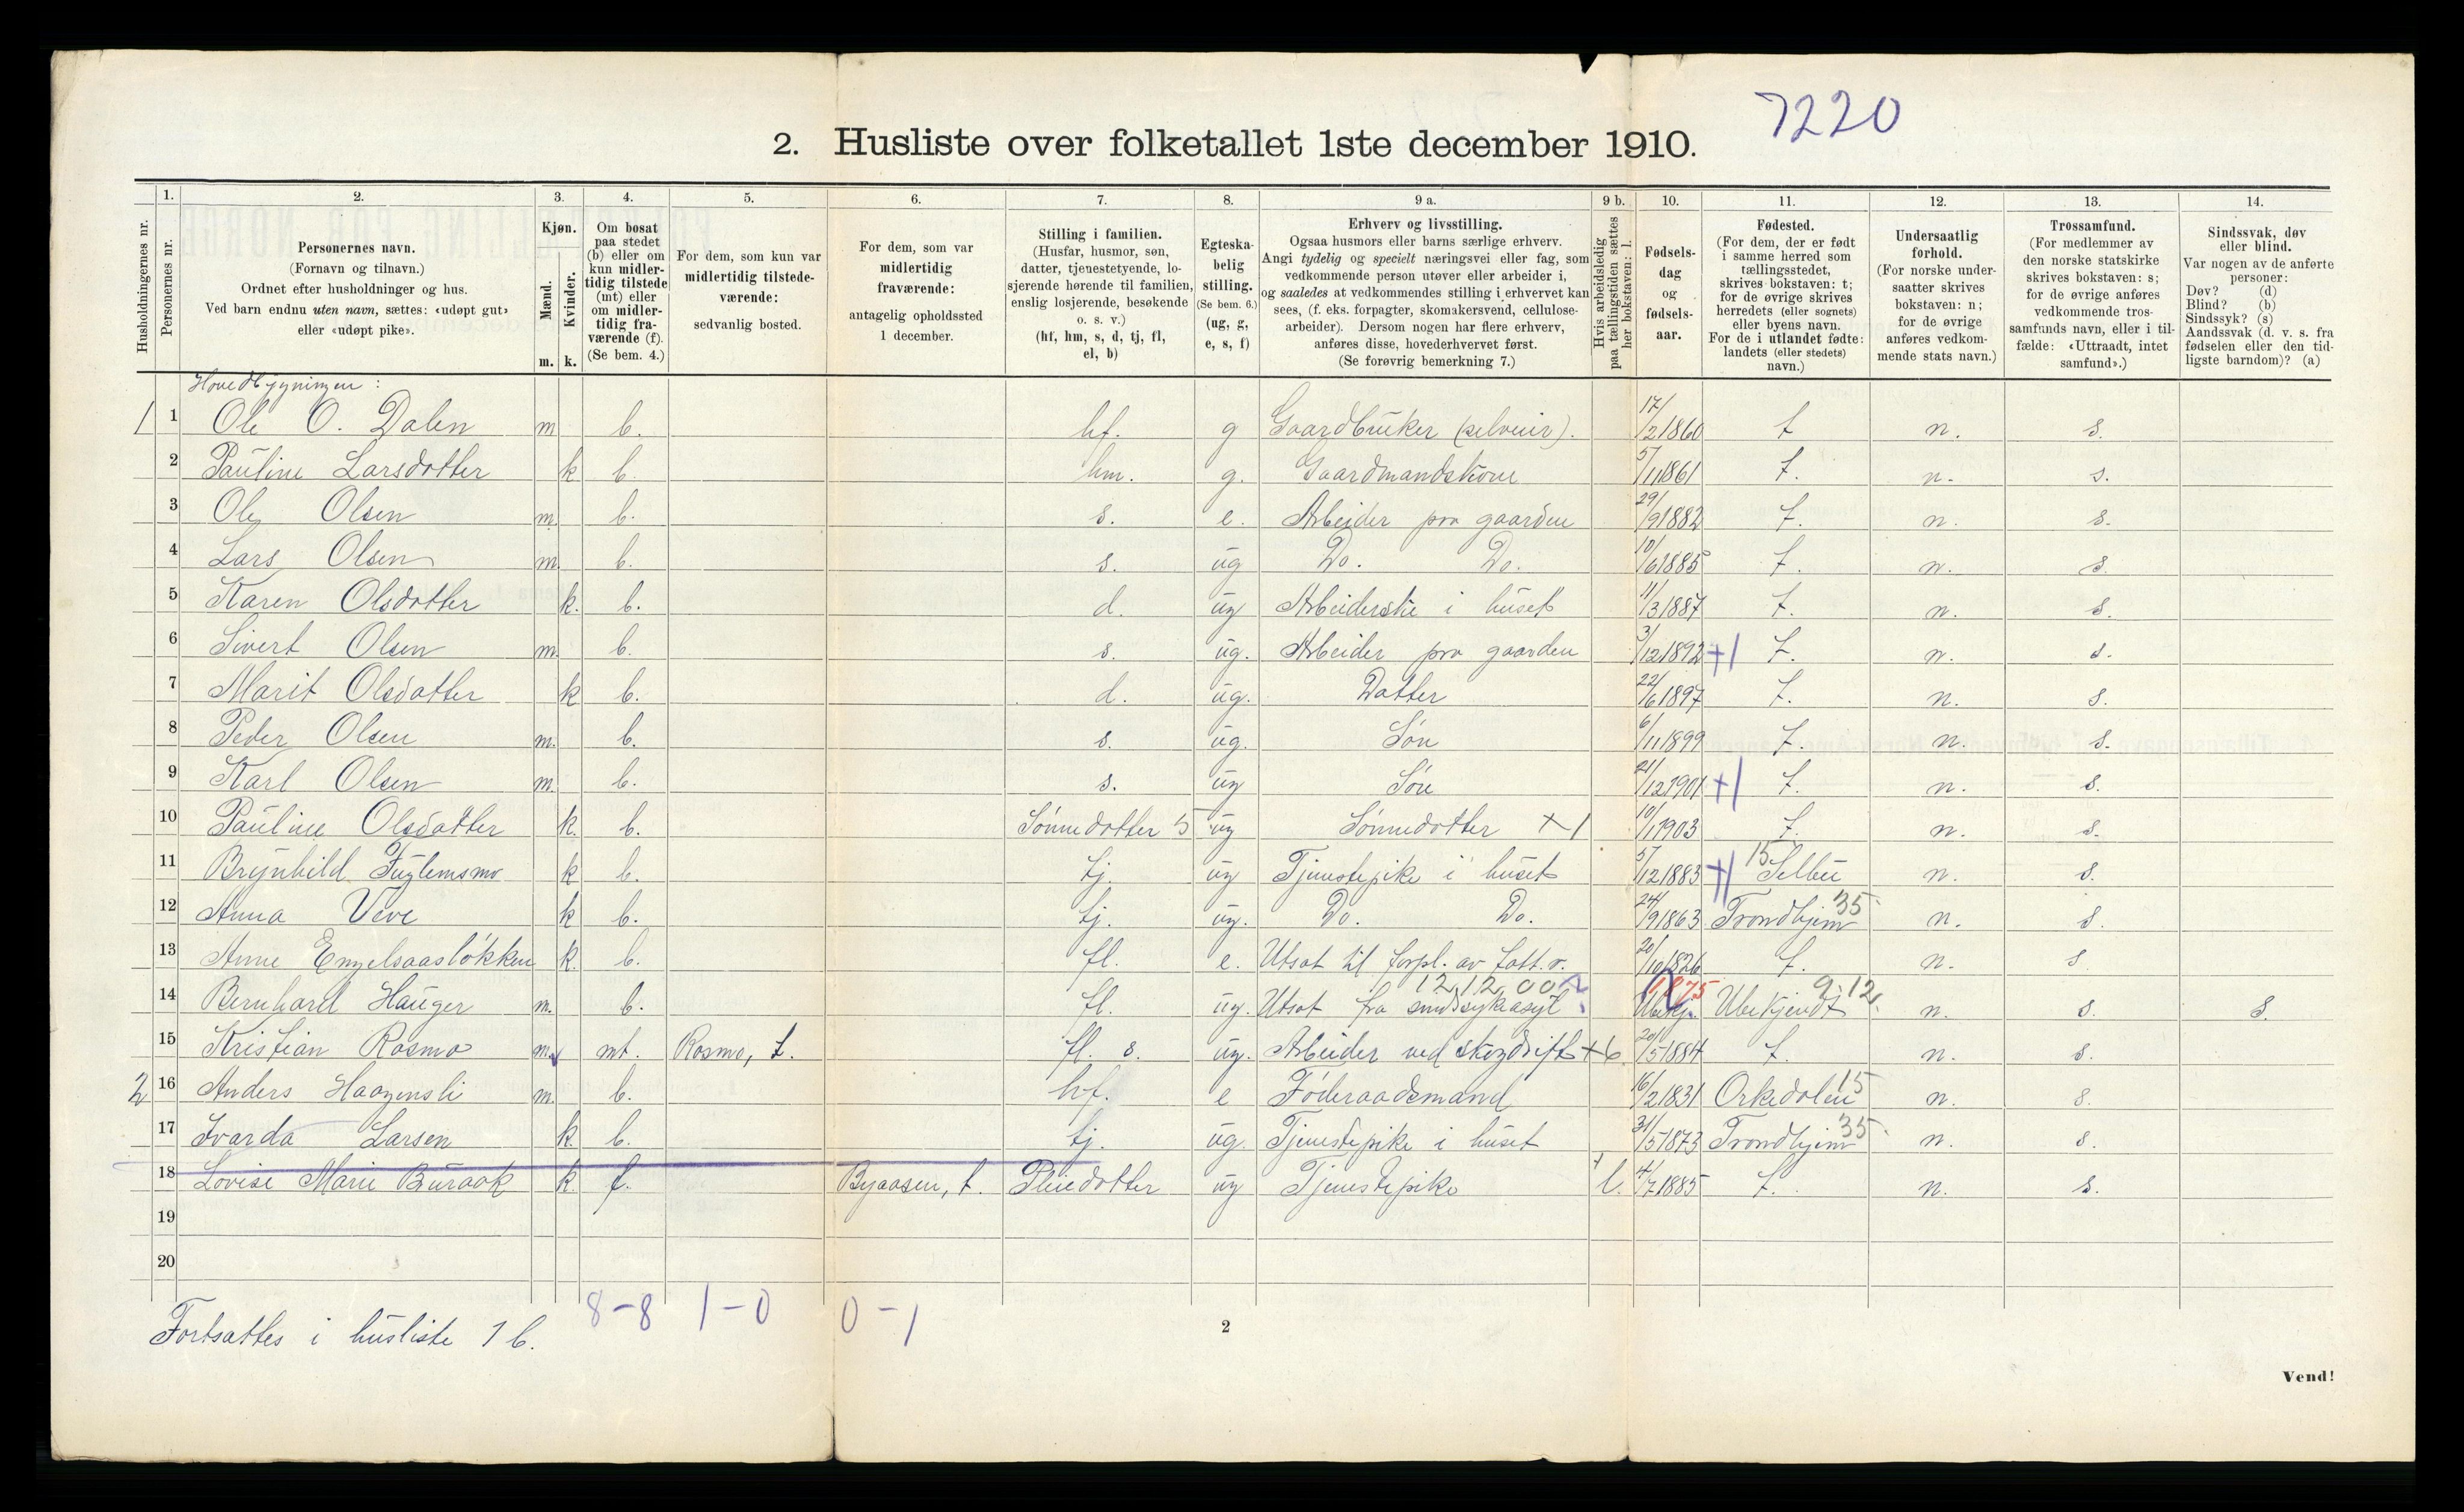 7220
2. Husliste over folketallet 1ste december 1910.
Husholdningernes nr.
1. Personernes nr.
2. Personernes navn. (Fornavn og tilnavn.) Ordnet efter husholdninger og hus. Ved barn endnu uten navn, sættes: «udøpt gut» eller «udøpt pike».
3. Kjøn. Mænd. m. Kvinder. k.
4. Om bosat paa stedet (b) eller om kun midlertidig tilstede (mt) eller om midlertidig fraværende (f). (Se bem. 4.)
5. For dem, som kun var midlertidig tilstedeværende: sedvanlig bosted.
6. For dem, som var midlertidig fraværende: antagelig opholdssted 1 december.
7. Stilling i familien. (Husfar, husmor, søn, datter, tjenestetyende, losjerende hørende til familien, enslig losjerende, besøkende o. s. v.) (hf, hm, s, d, tj, fl, el, b)
8. Egteskabelig stilling. (Se bem. 6.) (ug, g, e, s, f)
9 a. Erhverv og livsstilling. Ogsaa husmors eller barns særlige erhverv. Angi tydelig og specielt næringsvei eller fag, som vedkommende person utøver eller arbeider i, og saaledes at vedkommendes stilling i erhvervet kan sees, (f. eks. forpagter, skomakersvend, cellulosearbeider). Dersom nogen har flere erhverv, anføres disse, hovederhvervet først. (Se forøvrig bemerkning 7.)
9 b. Hvis arbeidsledig paa tællingstiden sættes her bokstaven: l.
10. Fødselsdag og fødselsaar.
11. Fødested. (For dem, der er født i samme herred som tællingsstedet, skrives bokstaven: t; for de øvrige skrives herredets (eller sognets) eller byens navn. For de i utlandet fødte: landets (eller stedets) navn.)
12. Undersaatlig forhold. (For norske undersaatter skrives bokstaven: n; for de øvrige anføres vedkommende stats navn.)
13. Trossamfund. (For medlemmer av den norske statskirke skrives bokstaven: s; for de øvrige anføres vedkommende trossamfunds navn, eller i tilfælde: «Uttraadt, intet samfund».)
14. Sindssvak, døv eller blind. Var nogen av de anførte personer: Døv? (d) Blind? (b) Sindssyk? (s) Aandssvak (d. v. s. fra fødselen eller den tidligste barndom)? (a)
Hovedbygningen:
1 1 Ole O. Dalen m b. hf. g Gaardbruker (selveier). 17/2 1860 t n. s.
2 Pauline Larsdatter k b. hm. g. Gaardmandskone 5/11 1861 t. n. s.
3 Ole Olsen m. b. s. e. Arbeider paa gaarden 29/9 1882 t. n. s.
4 Lars Olsen m. b. s. ug Do. Do. 10/6 1885 t. n. s.
5 Karen Olsdatter k. b. d. ug Arbeiderske i huset 11/3 1887 t. n. s.
6 Sivert Olsen m. b. s. ug. Arbeider paa gaarden 3/12 1892 +1 t. n. s.
7 Marit Olsdatter k b. d. ug. Datter 22/6 1897 t. n. s.
8 Peder Olsen m. b. s. ug. Søn 6/11 1899 t. n. s.
9 Karl Olsen m. b. s. ug Søn 21/12 1901 +1 t. n. s.
10 Pauline Olsdatter k. b. Sønnedatter 5 ug Sønnedatter +1 10/1 1903 t. n. s.
11 Brynhild Fuglemsmo k b. tj. ug Tjenestepike i huset 5/12 1883 +1 15 Selbu n. s.
12 Anna Veve k b. tj. ug. Do. Do. 24/9 1863 Trondhjem 35 n. s.
13 Anne Engelsaasløkken k. b. fl. e. Utsat til forpl. av fatt.v. 20/10 1826 t. n. s
14 Bernhard Hauger m. b. fl. ug. Utsat fra sindssykeasyl 1875 Ubekj. Ubekjendt 9.12. n. s. s.
15 Kristian Rosmo m. mt. Rosmo, t. fl. s. ug. Arbeider ved skogdrift +6 20/5 1884 t. n. s.
2 16 Anders Haagensli m. b. hf. e Føderaadsmand 16/2 1831 Orkedalen 15 n. s.
17 Ivarda Larsen k. b. tj. ug. Tjenestepike i huset 31/5 1873 Trondhjem 35 n. s.
18 Lovise Marie Buraak k. f. Byaasen, t. Pleiedatter ug Tjenestepike l. 4/7 1885 t. n. s.
19
20
8-8 1-0 0-1
Fortsættes i husliste 1 b.
2
Vend!